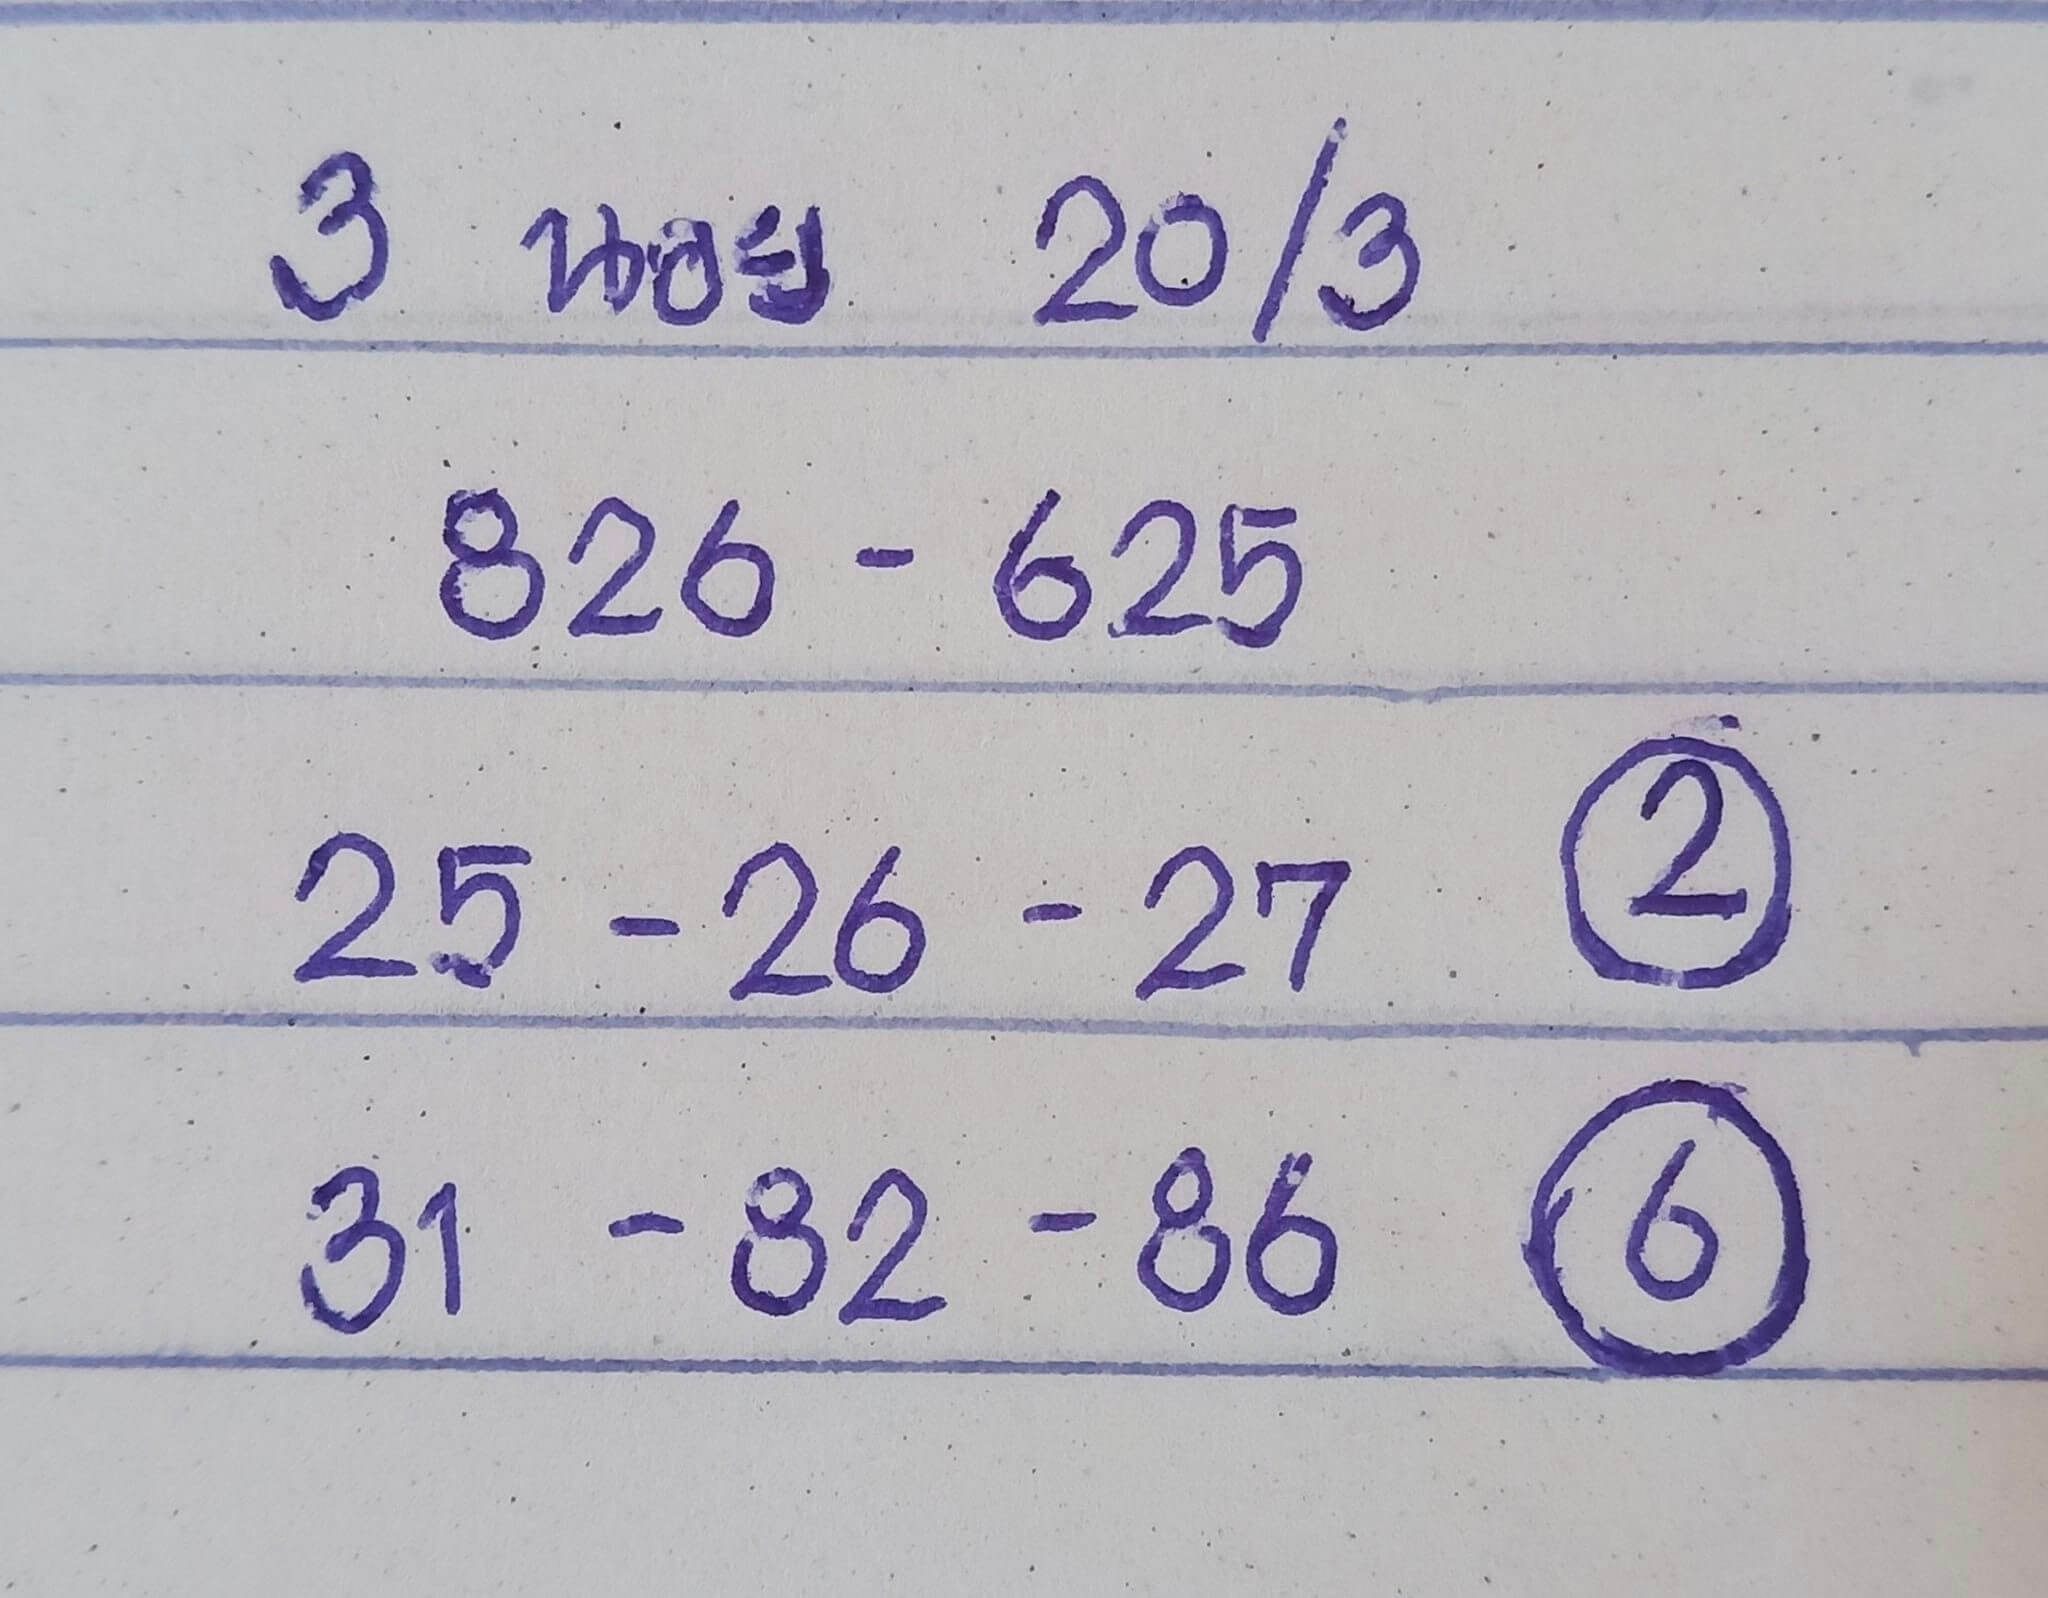 3 นอย 20/3
826 - 625
25 - 26 - 27 2
31 - 82 - 86 6